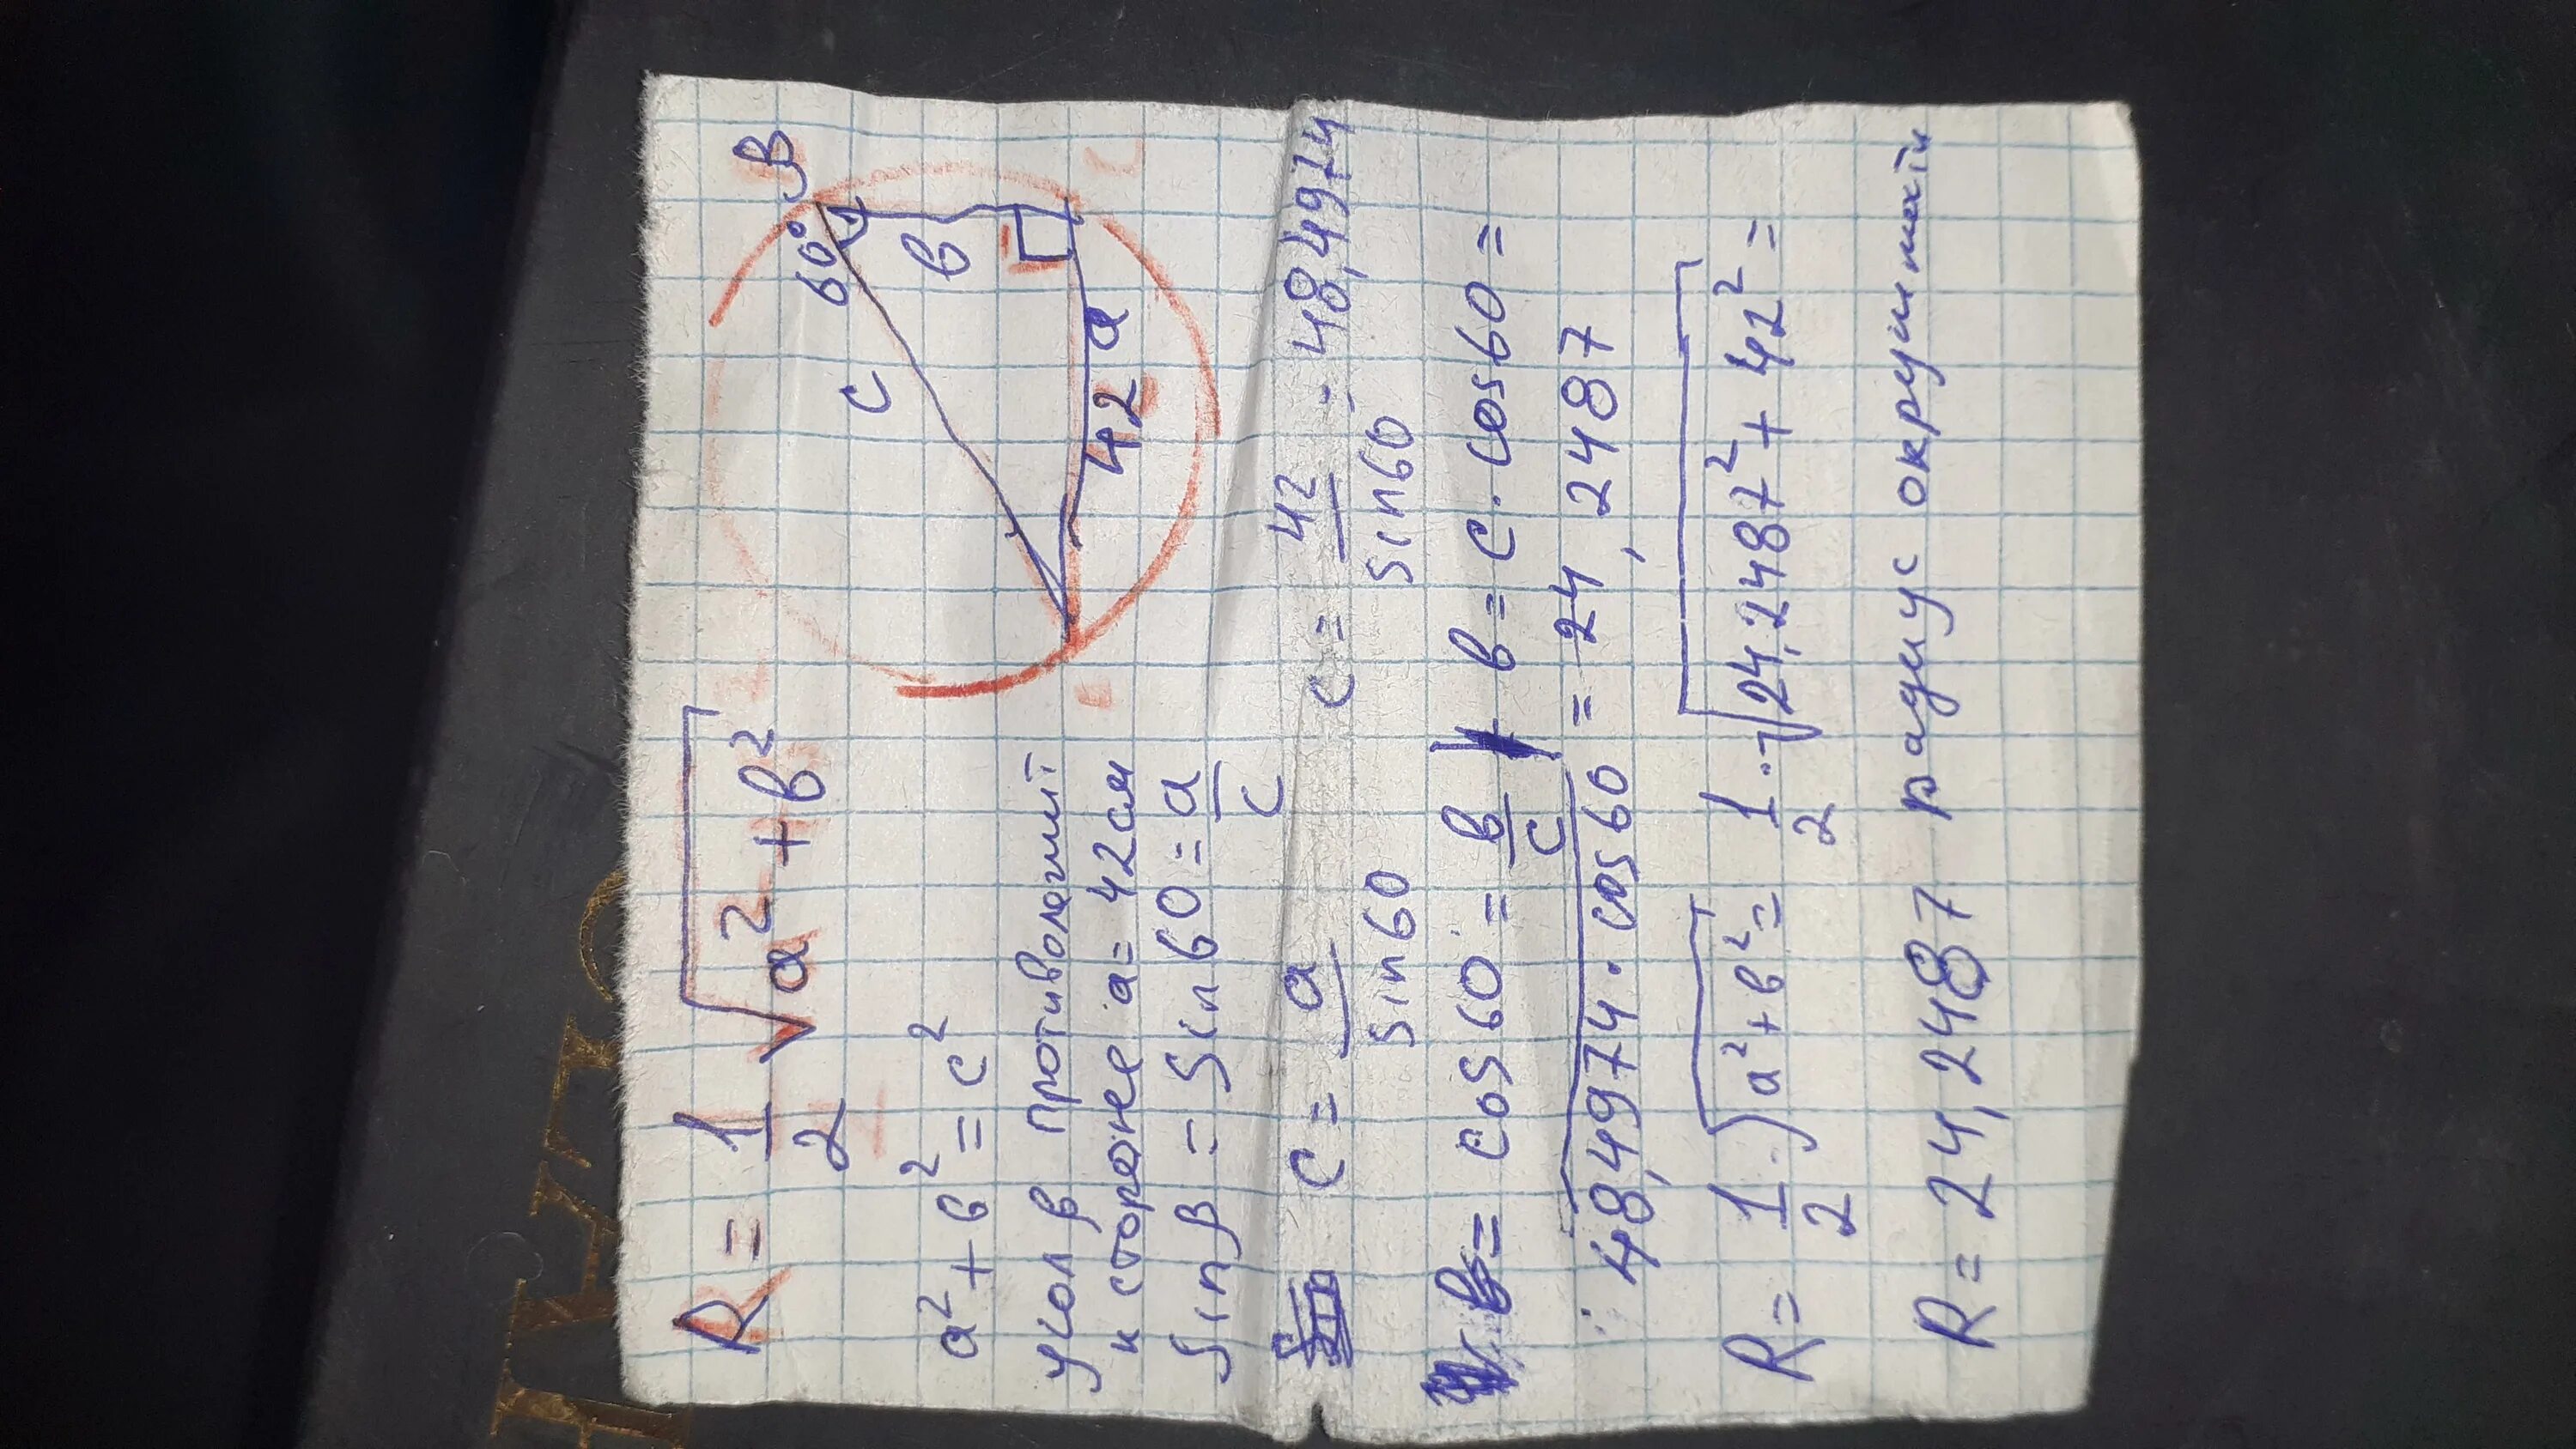 R = 1/2 √a² + b²
B
60°
c
b
42 a
a² + b² = c²
угол β противолежит
к стороне a = 42см
sin β = sin 60 = a/c
c = a/sin60 c = 42/sin60 = 48,4974
cos 60 = b/c b = c · cos60 =
= 48,4974 · cos 60 = 24,2487
R = 1/2 · √a² + b² = 1/2 · √24,2487² + 42² =
R = 24,2487 радиус окружности